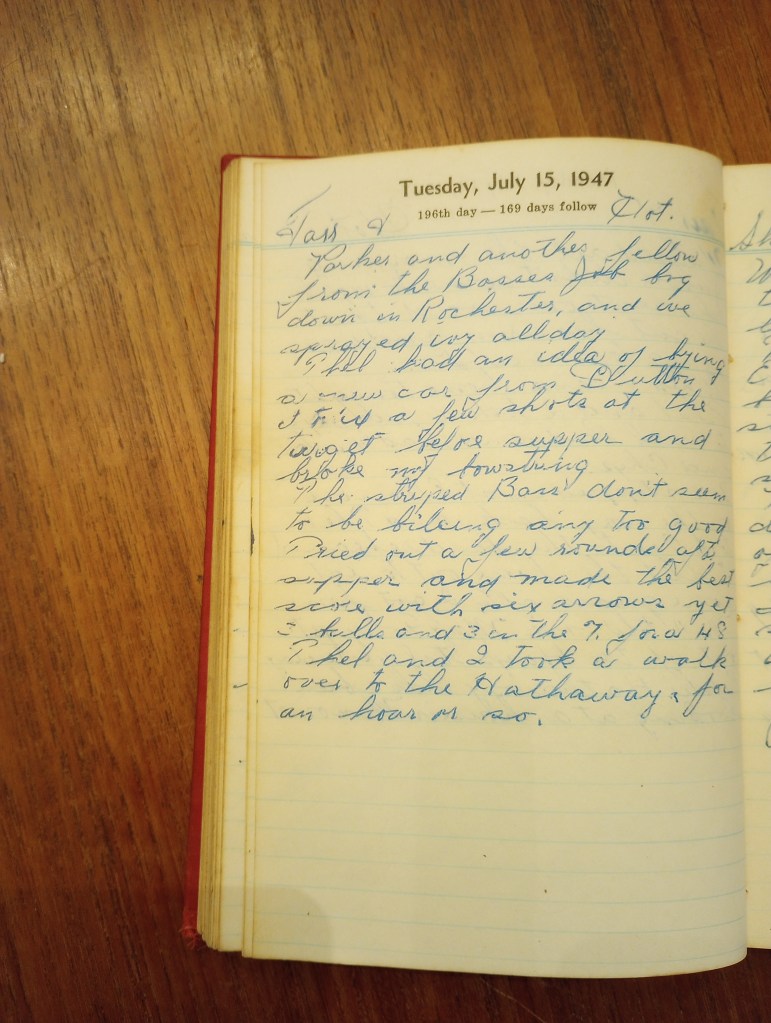 Tuesday, July 15, 1947
196th day — 169 days follow Hot.
Parker and another fellow
from the Basses Job bog
down in Rochester, and we
sprayed ivy allday
Thel had an idea of bying
a new car from Dutton
a few shots at the
target before supper and
broke my bowstring
The striped Bass dont seem
to be biteing any too good
Tried out a few rounds aft
supper and made the best
score with six arrows yet
3 bulls and 3 in the 7. for a 48
Thel and I took a walk
over to the Hathaways for
an hour or so.